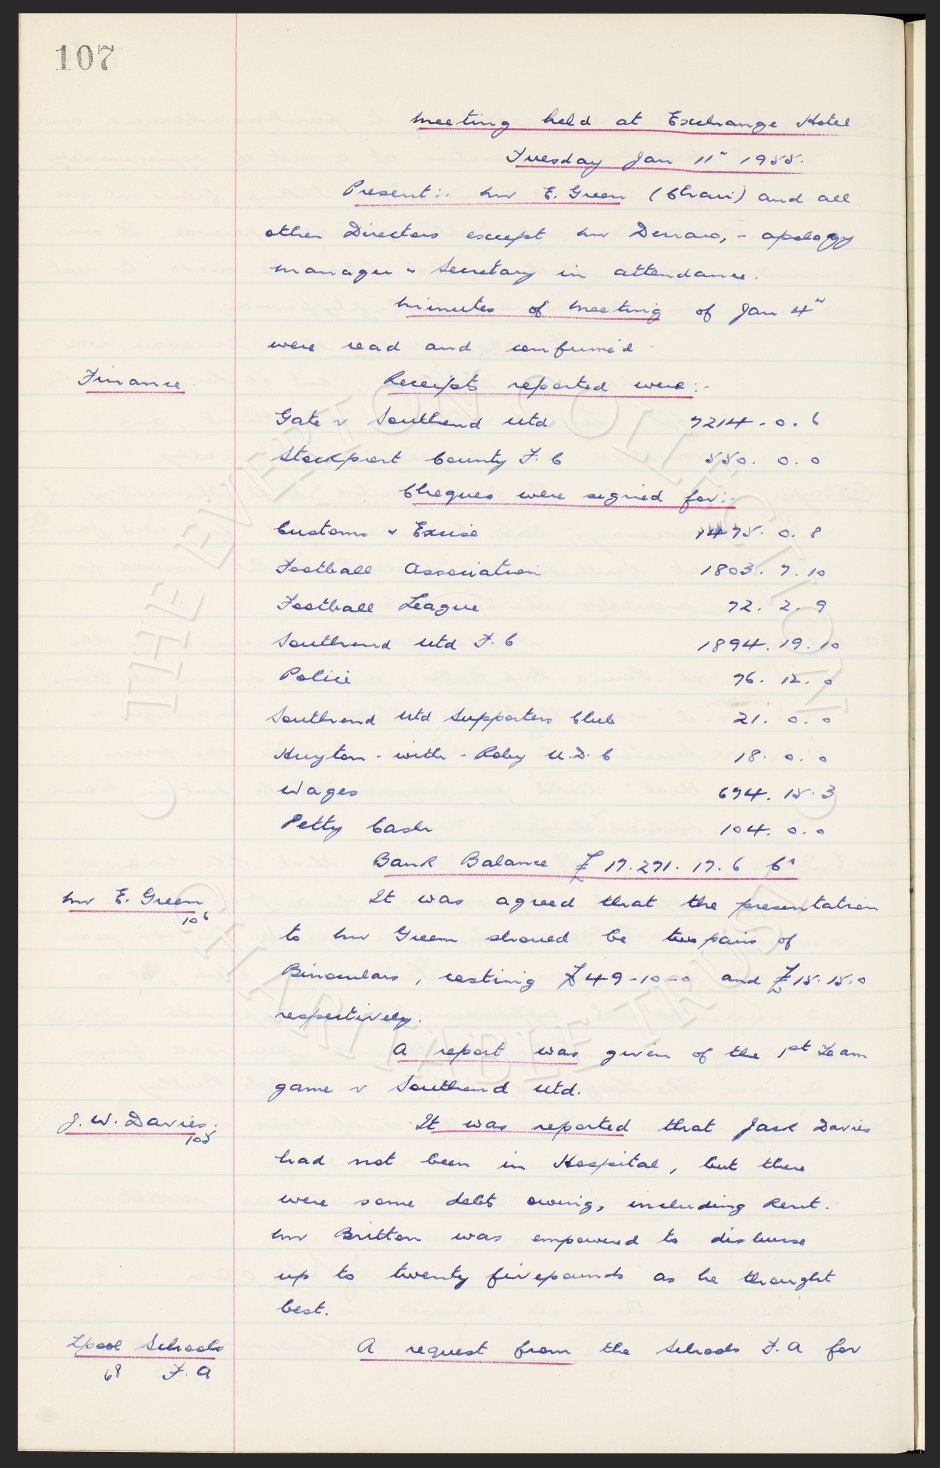 107
Meeting held at Exchange Hotel
Tuesday Jan 11" 1955.
Present:- Mr E. Green (Chair) and all
other Directors except Mr , - apology
Manager & Secretary in attendance.
Minutes of Meeting of Jan 4"
were read and confirmed
Finance
Receipts reported were:-
Gate v Southend Utd 7214. 0. 6
Stockport County F. C 550. 0. 0
Cheques were signed for:-
Customs & Excise 1475. 0. 8
Football Association 1803. 7. 10
Football League 72. 2. 9
Southend Utd F. C 1894. 19. 10
Police 76. 12. 0
Southend Utd Supporters Club 21. 0. 0
Huyton - with - Roby U. D. C 18. 0. 0
Wages 694. 15. 3
Petty Cash 104. 0. 0
Bank Balance £17.271. 17. 6 Cr
Mr E. Green
106
It was agreed that the presentation
to Mr Green should be two pairs of
Binoculars, costing £49-10-0 and £15. 15. 0
respectively.
A report was given of the 1st Team
game v Southend Utd.
J. W. Davies.
105
It was reported that Jack Davies
had not been in Hospital, but there
were some debts owing, including Rent.
Mr Britton was empowered to disburse
up to twenty five pounds as he thought
best.
L'pool Schools
68 F. A
A request from the Schools F. A for
THE EVERTON COLLECTION
CHARITABLE TRUST